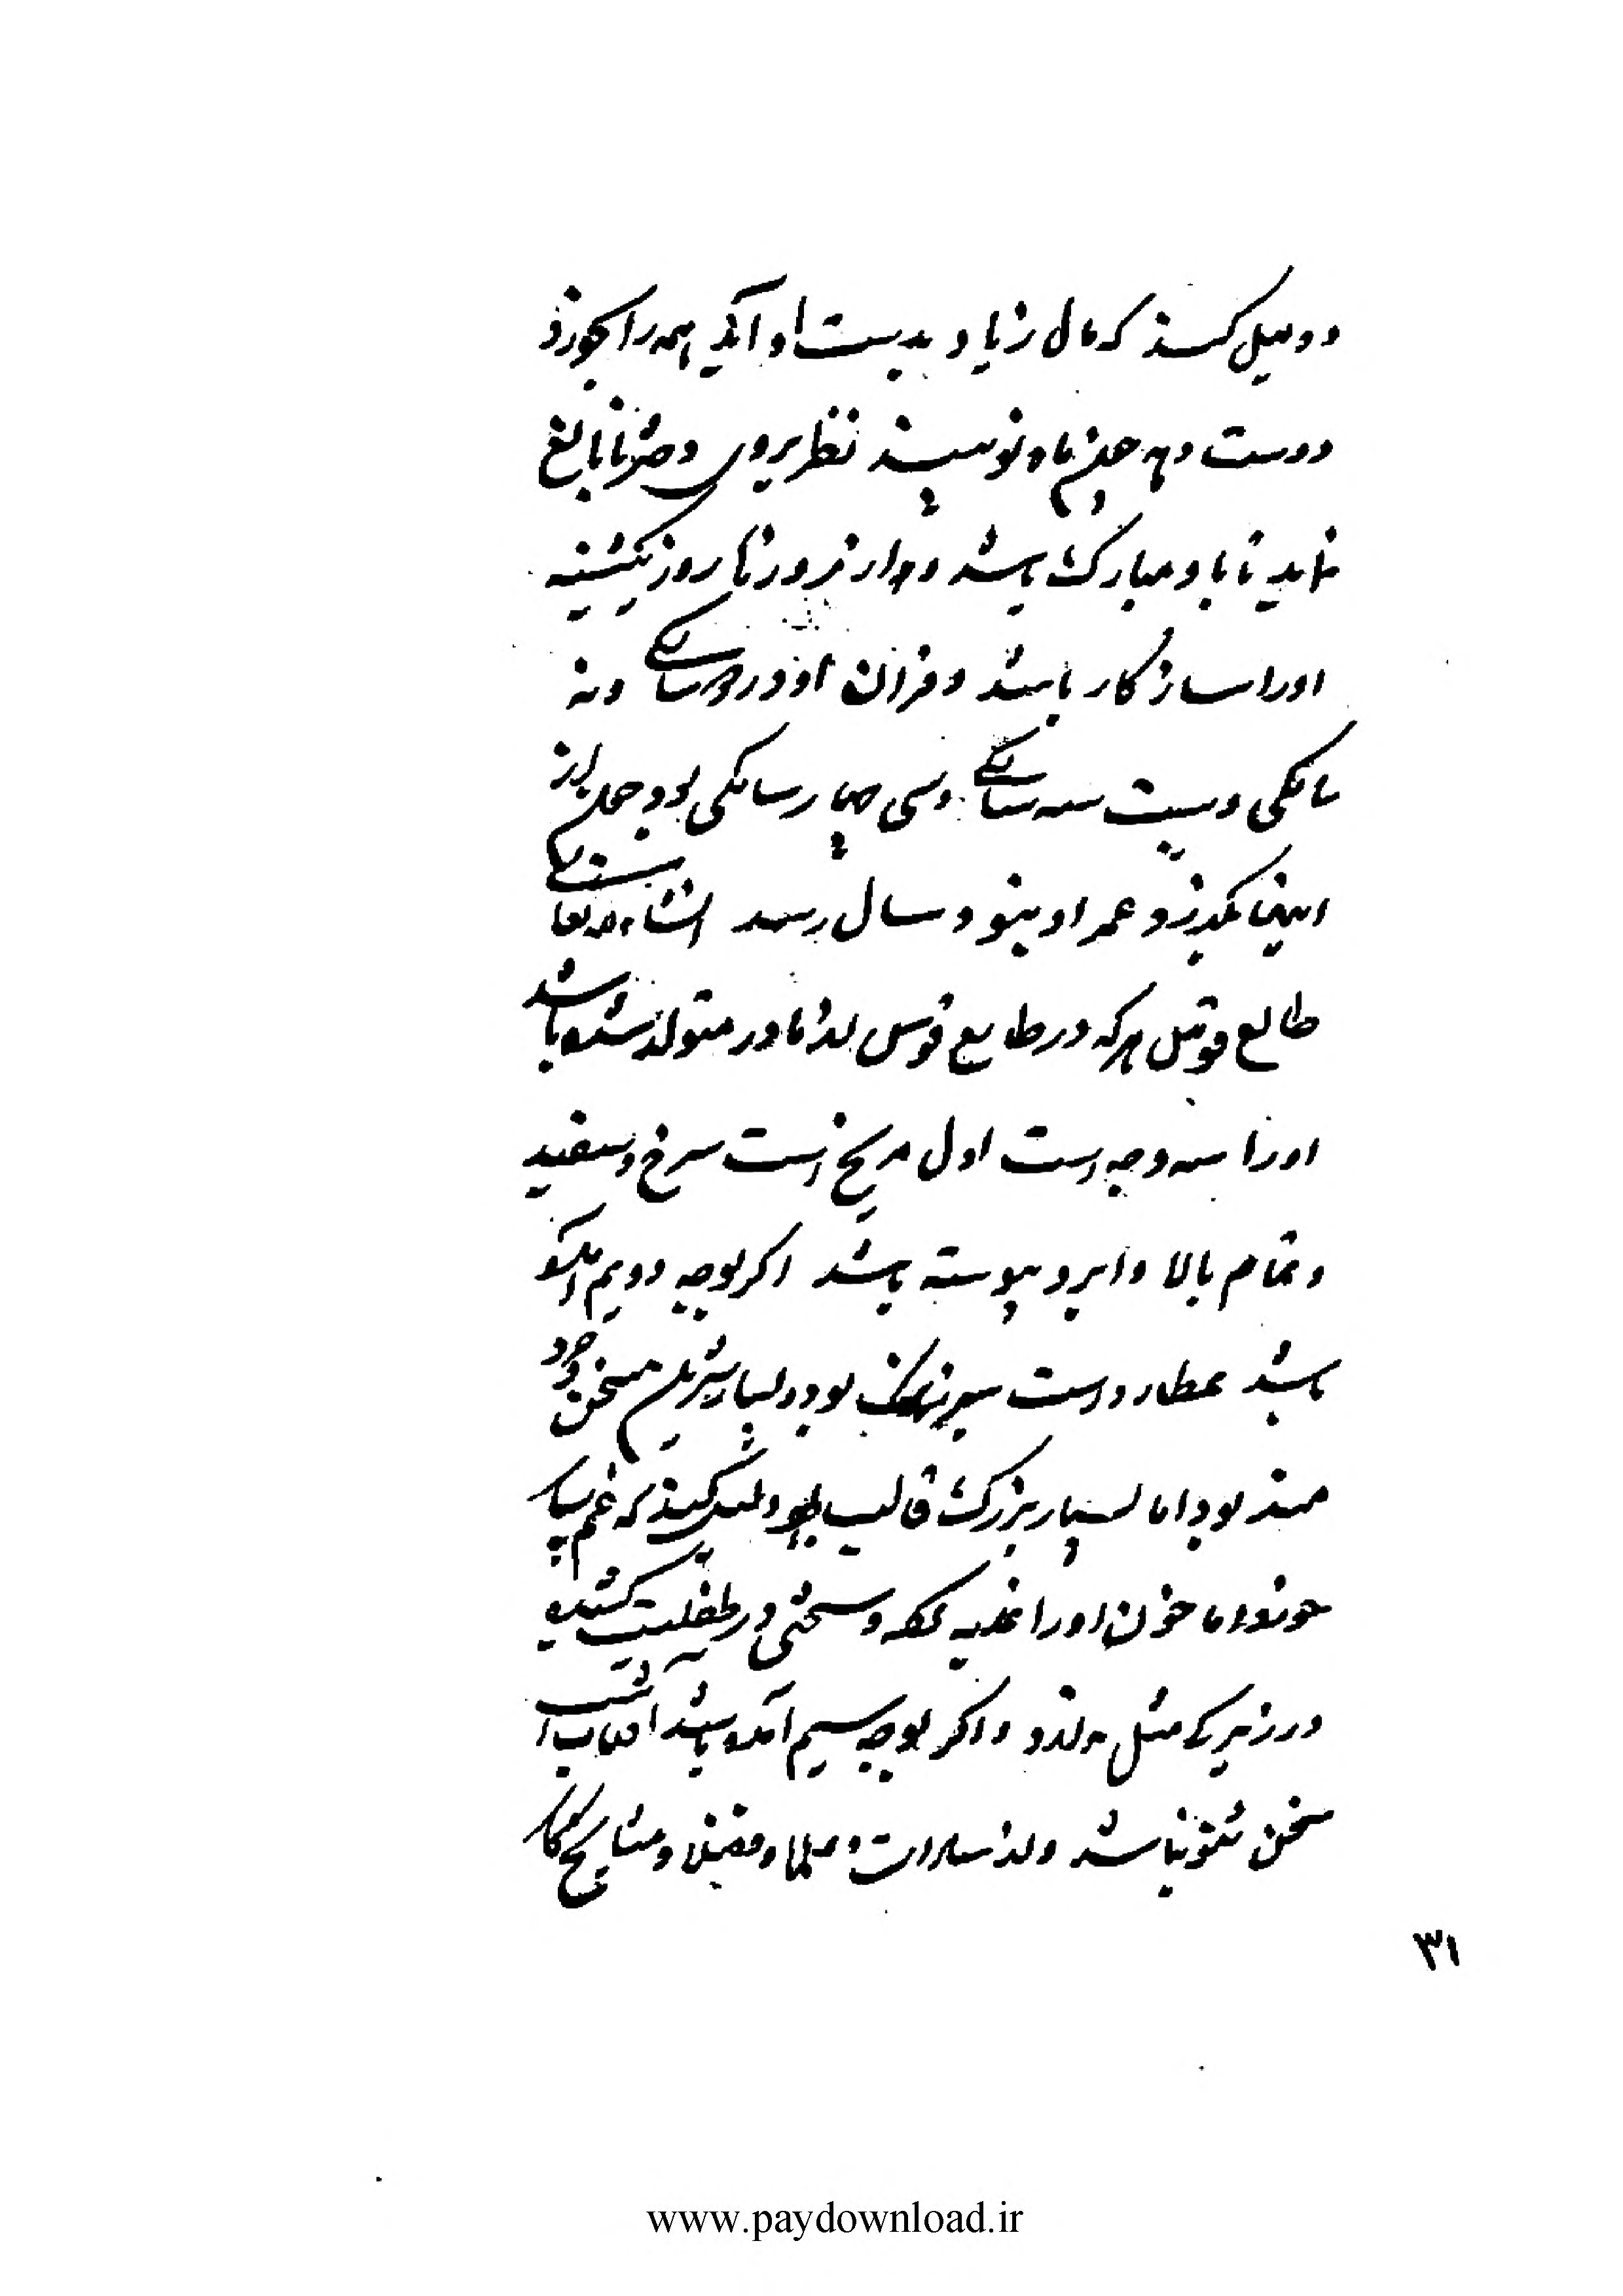 و دلیل کند که مال زیاد بدست او آید همه را بخورد
دوست و چون ماه نو بیند نظر بروی دختر نابالغ
نماید تا با و مبارک باشد و از روزها روز یکشنبه
اورا سازکار باشد و قران او در سالگی و نه
سالگی و بیست سه سالگی وسی چهار سالگی بود چون از
اینها بگذرد عمر او بنود سال رسد انشاءالله تعالی
طالع قوس هر که در طالع قوس از مادر متولد شده باشد
اورا سه وجه است اول مریخ است سرخ و سفید
و تمام بالا و ابرو پیوسته باشد اگر بوجه دویم آمده
باشد عطارد است بود و بسیار شیرین سخن و خرد
مند بود اما بسیار بزرگ قالب بود دلیل کند که غم بسیار
خورد اما خون اورا غلبه کند و سختی در طفلیت کشیده
در زیرکی مثل ندارد و اگر بوجه سیم آمده باشد آفتاب است
سخن شنو نباشد و از سادات و علما و فضلا و مشایخ
۳۱
www.paydownload.ir